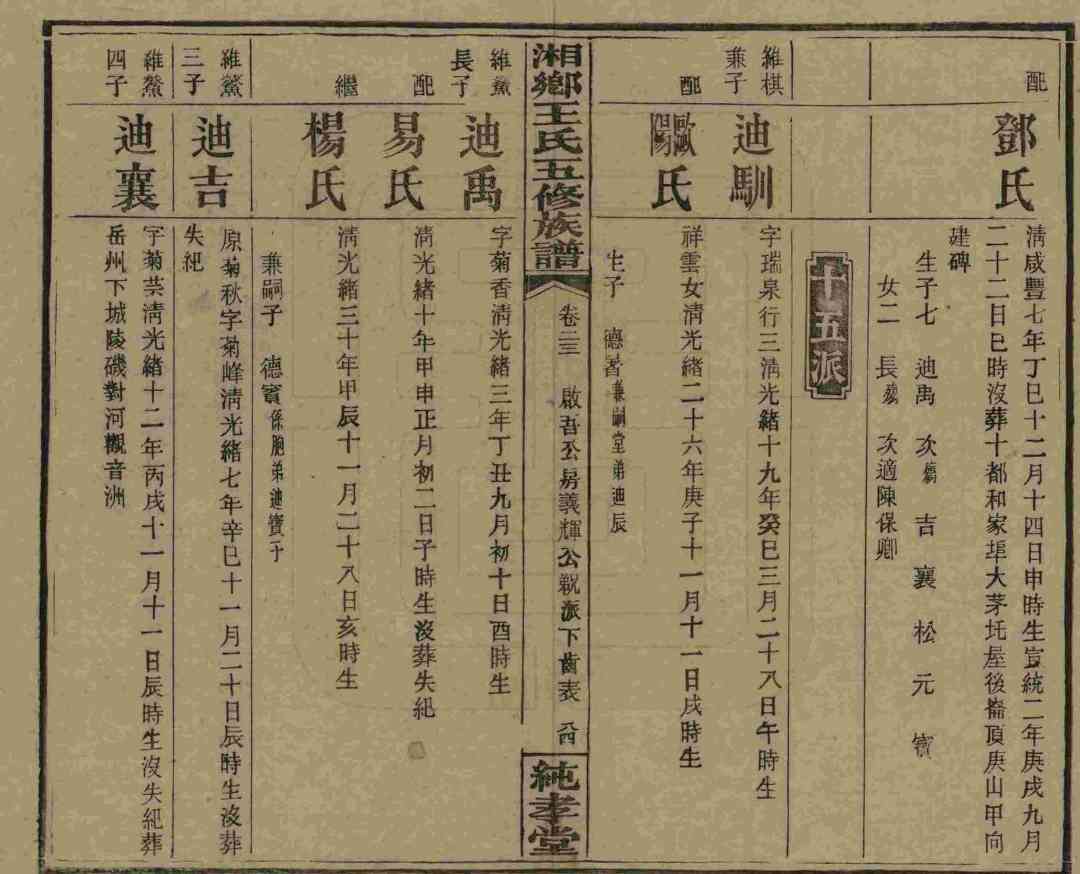 配
鄧氏
淸咸豐七年丁巳十二月十四日申時生宣統二年庚戌九月
二十二日巳時沒葬十都和家埠大茅坵屋後崙頂庚山甲向
建碑
生子七 迪禹 次殤 吉 襄 松 元 寶
女二 長殤 次適陳保卿
十五派
維棋
兼子
迪馴
字瑞泉行三淸光緒十九年癸巳三月二十八日午時生
配
歐陽氏
祥雲女淸光緒二十六年庚子十一月十一日戌時生
生子 德著兼嗣堂弟迪辰
湘鄉王氏五修族譜
卷二三 啟吾公房義輝公親派下齒表
純孝堂
維鰲
長子
迪禹
字菊香淸光緒三年丁丑九月初十日酉時生
配
易氏
淸光緒十年甲申正月初二日子時生沒葬失紀
繼
楊氏
淸光緒三十年甲辰十一月二十八日亥時生
兼嗣子 德寶係胞弟迪寶子
維鰲
三子
迪吉
原菊秋字菊峰淸光緒七年辛巳十一月二十日辰時生沒葬
失紀
維鰲
四子
迪襄
字菊芸淸光緒十二年丙戌十一月十一日辰時生沒失紀葬
岳州下城陵磯對河觀音洲